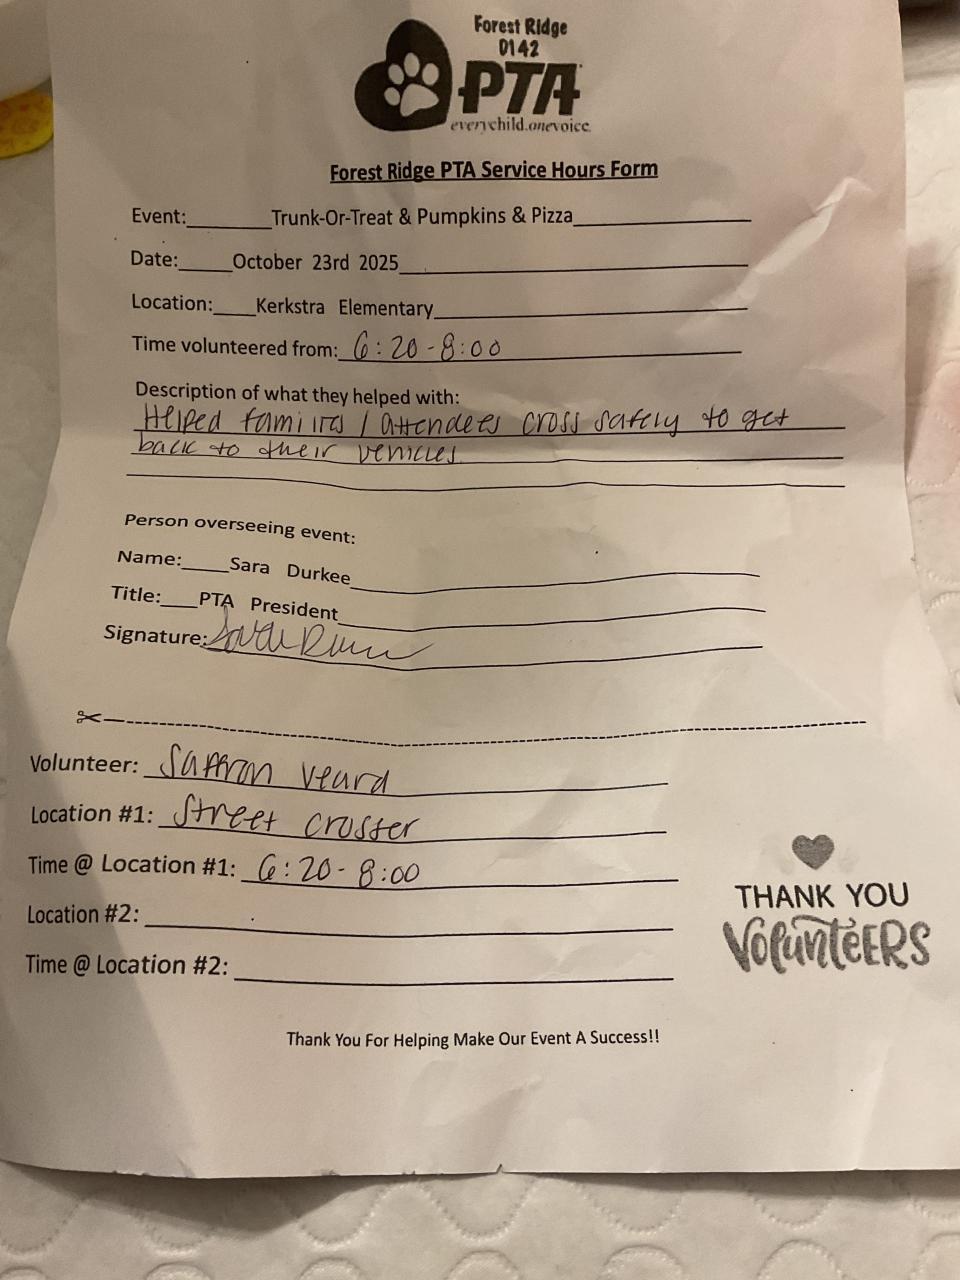 Forest Ridge
D142
PTA
everychild.onevoice.
Forest Ridge PTA Service Hours Form
Event: Trunk-Or-Treat & Pumpkins & Pizza
Date: October 23rd 2025
Location: Kerkstra Elementary
Time volunteered from: 6:20-8:00
Description of what they helped with:
Helped families / attendees cross safely to get
back to their vehicles
Person overseeing event:
Name: Sara Durkee
Title: PTA President
Signature:
Volunteer: Saffron Veard
Location #1: Street crosser
Time @ Location #1: 6:20-8:00
Location #2:
Time @ Location #2:
THANK YOU
VOLUNTEERS
Thank You For Helping Make Our Event A Success!!